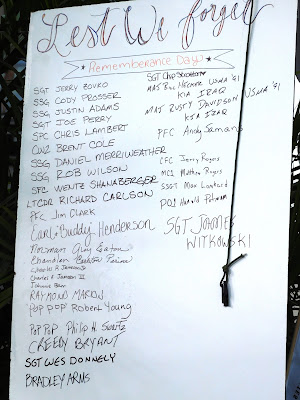 Lest We forget
Rememberance Day
SGT JERRY BOVKO
SSG CODY PROSSER
SSG JUSTIN ADAMS
SGT JOE PERRY
SPC CHRIS LAMBERT
CW2 BRENT COLE
SSG DANIEL MERRIWEATHER
SSG ROB WILSON
SFC WENTZ SHANABERGER
LTCDR RICHARD CARLSON
PFC Jim Clark
Carl "Buddy" Henderson
Guy Eaton
Chandlan
Charles R Jameson
Charles R Jameson III
Johnnie
RAYMOND MARION
POP POP Robert Young
POP POP Philip H.
CREEDY BRYANT
SGT WES DONNELY
BRADLEY ARMS
SGT Chip
MAJ Bill Hecker USMA '91
KIA IRAQ
MAJ RUSTY DAVIDSON USMA '91
KIA IRAQ
PFC Andy Samano
CFC Jerry Rogers
Mathew Rogers
SSGT Max Lambert
Harold Putnam
SGT JOHNNES
WITKOWSKI